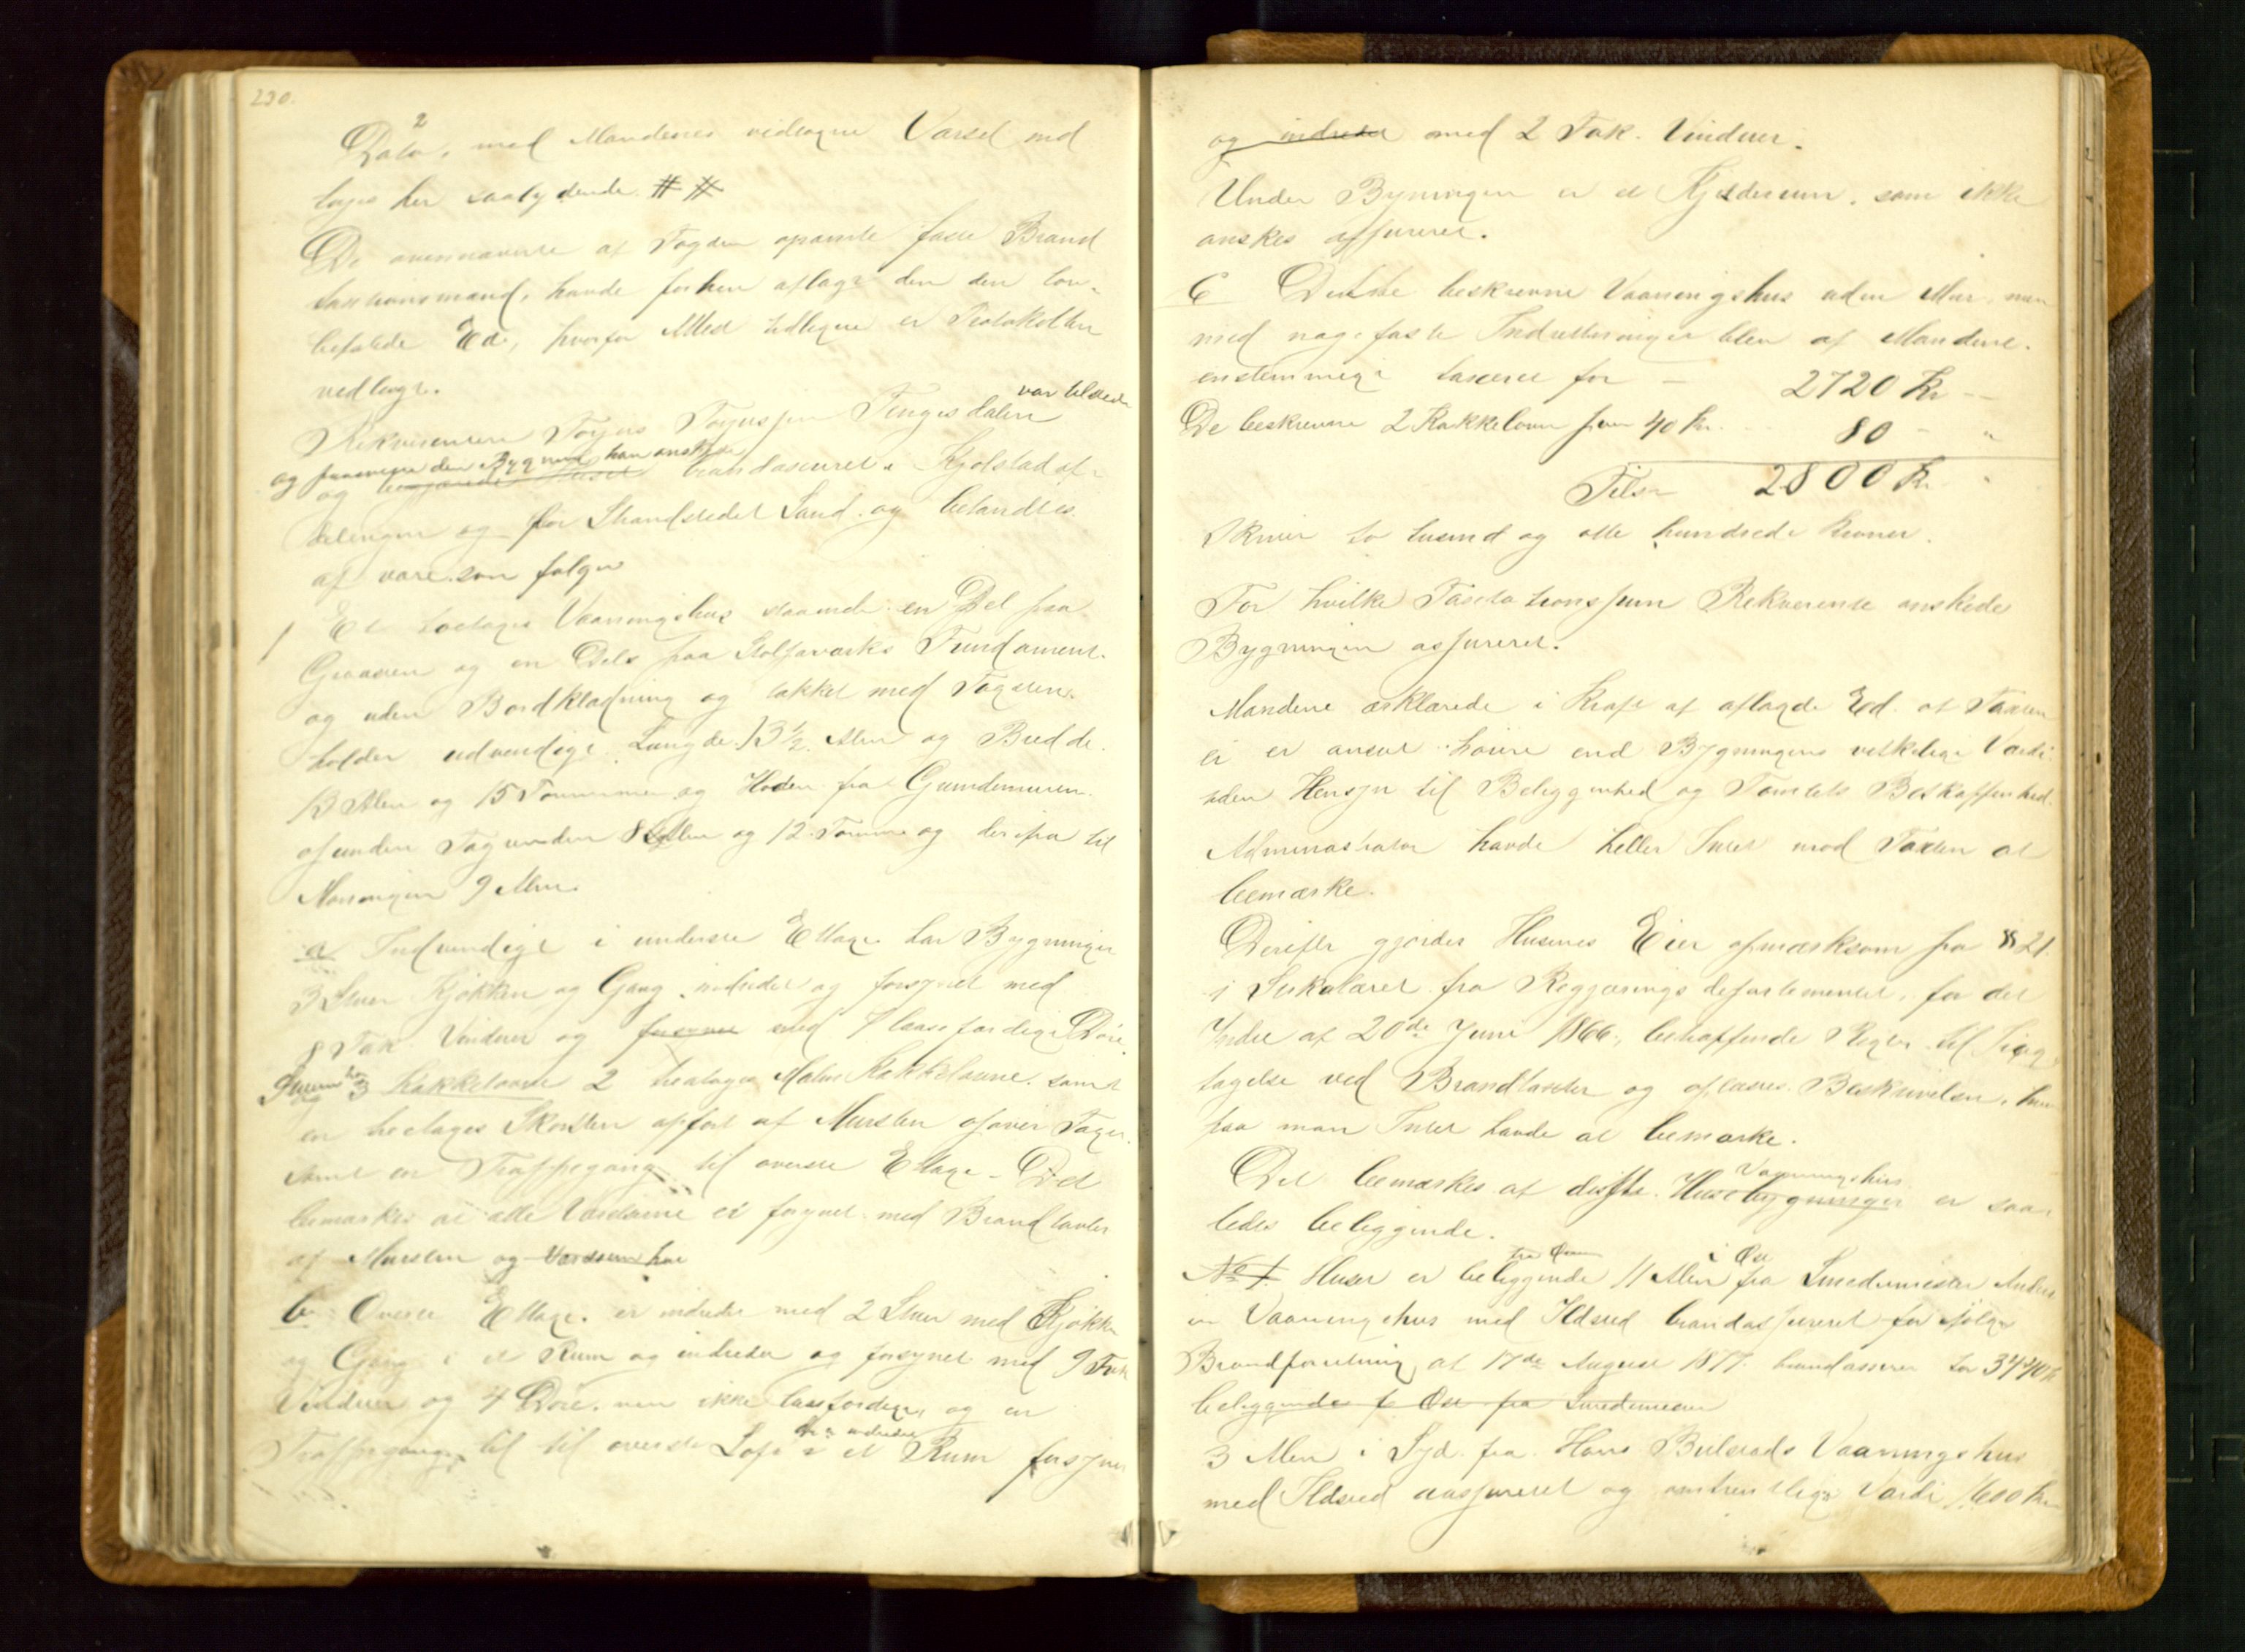 230.
2
Dato, med Mændenes vedtagne Varsel ned
tages her saalydende # #
De ovennævnte af Fogden opnævnte faste Brand
taxtionsmænd, havde forhen aflagt den den lov-
befalede Ed, hvorfor Attest tidligere er Protokollen
vedlagt.
Rekvirenten Torjus Torjussen Tengesdalen var tilstede
og paaviste den Bygning han ønskede
og huset brandassureret i Kjøbstadaf-
delingen og for Strandstedet Sand og befandtes
at være som følger
1 Et toetages Vaaningshus staaende en Del paa
Graasten og en Dels paa Fundament
og uden Bordklædning og takket med Tagsten
holder udvendigt Længde 13½ Alen og Bredde
13 Alen og 15 Tommer og Høiden fra Grundmuren
op under Tag 8 Alen og 12 Tomme og derifra til
Mønningen 9 Alen
a Indvendigt i underste Ettage har Bygningen
3 Stuer Kjøkken og Gang indredet og forsynet med
8 Fak Vinduer og forsynet med 7 laasefærdige Døre
3 Kakkelovne 2 toetages Malm Kakkelovne samt
en toetages Skorsten opført af Mursten op over Taget
samt en Trappegang til øverste Ettage - Det
bemærkes at alle Værelserne er forsynet med Brandtavler
af Mursten og
b. Øverste Ettage er indredet med 2 Stuer med Kjøkken
og Gang i et Rum og indredet og forsynet med 9 Fak
Vinduer og 4 Døre, men ikke laasfærdige, og en
Trappegang til til øverste Loft i et Rum forsynet
og indredet med 2 Fak. Vinduer.
Under Bygningen er et Kjelderrum, som ikke
ønskes assureret.
C Dette beskrevne Vaaningshus uden Mur, men
med nagefaste Indretninger blev af Mændene
enstemmigt taxeret for - 2720 Kr --
De beskrevne 2 Kakkelovn 40 Kr. 80 - "
Tilsm 2800 Kr "
Skriver to tusend og otte hundrede Kroner.
For hvilke Taxtationssum Rekvirente ønskede
Bygningen assureret.
Mændene ærklærede i Kraft af aflagde Ed at Taxten
ei er ansat høiere end Bygningens virkelige Værdi
uden Hensyn til Beliggenhed og Tomtets Beskaffenhed.
Administrator havde heller Intet mod Taxten at
bemærke.
Derefter gjordes Husenes Eier opmærksom paa § 21
i Sirkulæret fra Regjærings departementet, for det
Indre af 20de Juni 1866, betræffende Regler til Iagt
tagelse ved Brandtaxter og oplæstes Beskrivelsen, hvor
paa man Intet havde at bemærke.
Det bemærkes at disse Husebygninger Vaaningshus er saa-
ledes beliggende.
No 1. Huset er beliggende 11 Alen i Øst fra Smedemester
Vaaningshus med Ildsted brandassureret for ifølge
Brandforretning af 17de August 1877 brandassureret for 3440 Kr
beliggende i Øst fra Smedemester
3 Alen i Syd fra Hans Vaaningshus
med Ildsted uassureret og omtrentlige Værdi 1600 Kr